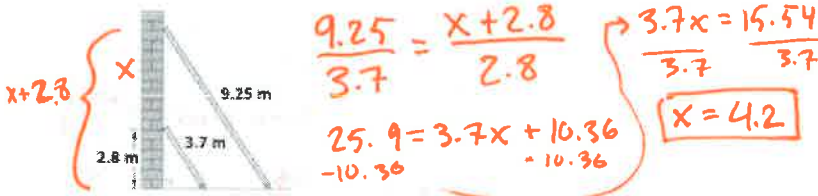 x+2.8
x
9.25 m
3.7 m
2.8 m
9.25/3.7 = x+2.8/2.8
25.9 = 3.7x + 10.36
-10.36 - 10.36
3.7x = 15.54
3.7 3.7
x = 4.2